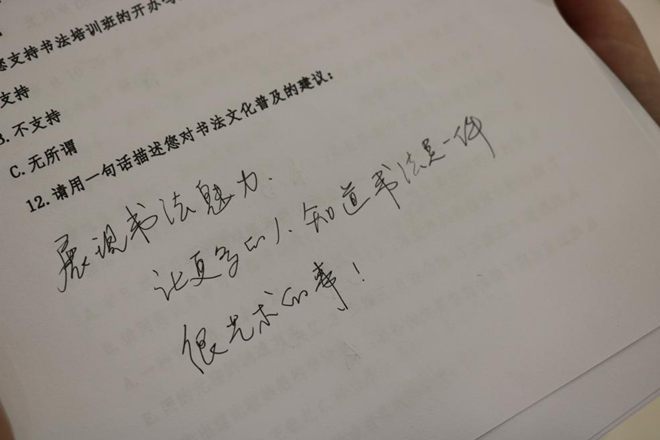 您支持书法培训班的开办
支持
B.不支持
C.无所谓
12.请用一句话描述您对书法文化普及的建议:
展现书法魅力.
让更多的人知道书法是一件
很艺术的事!